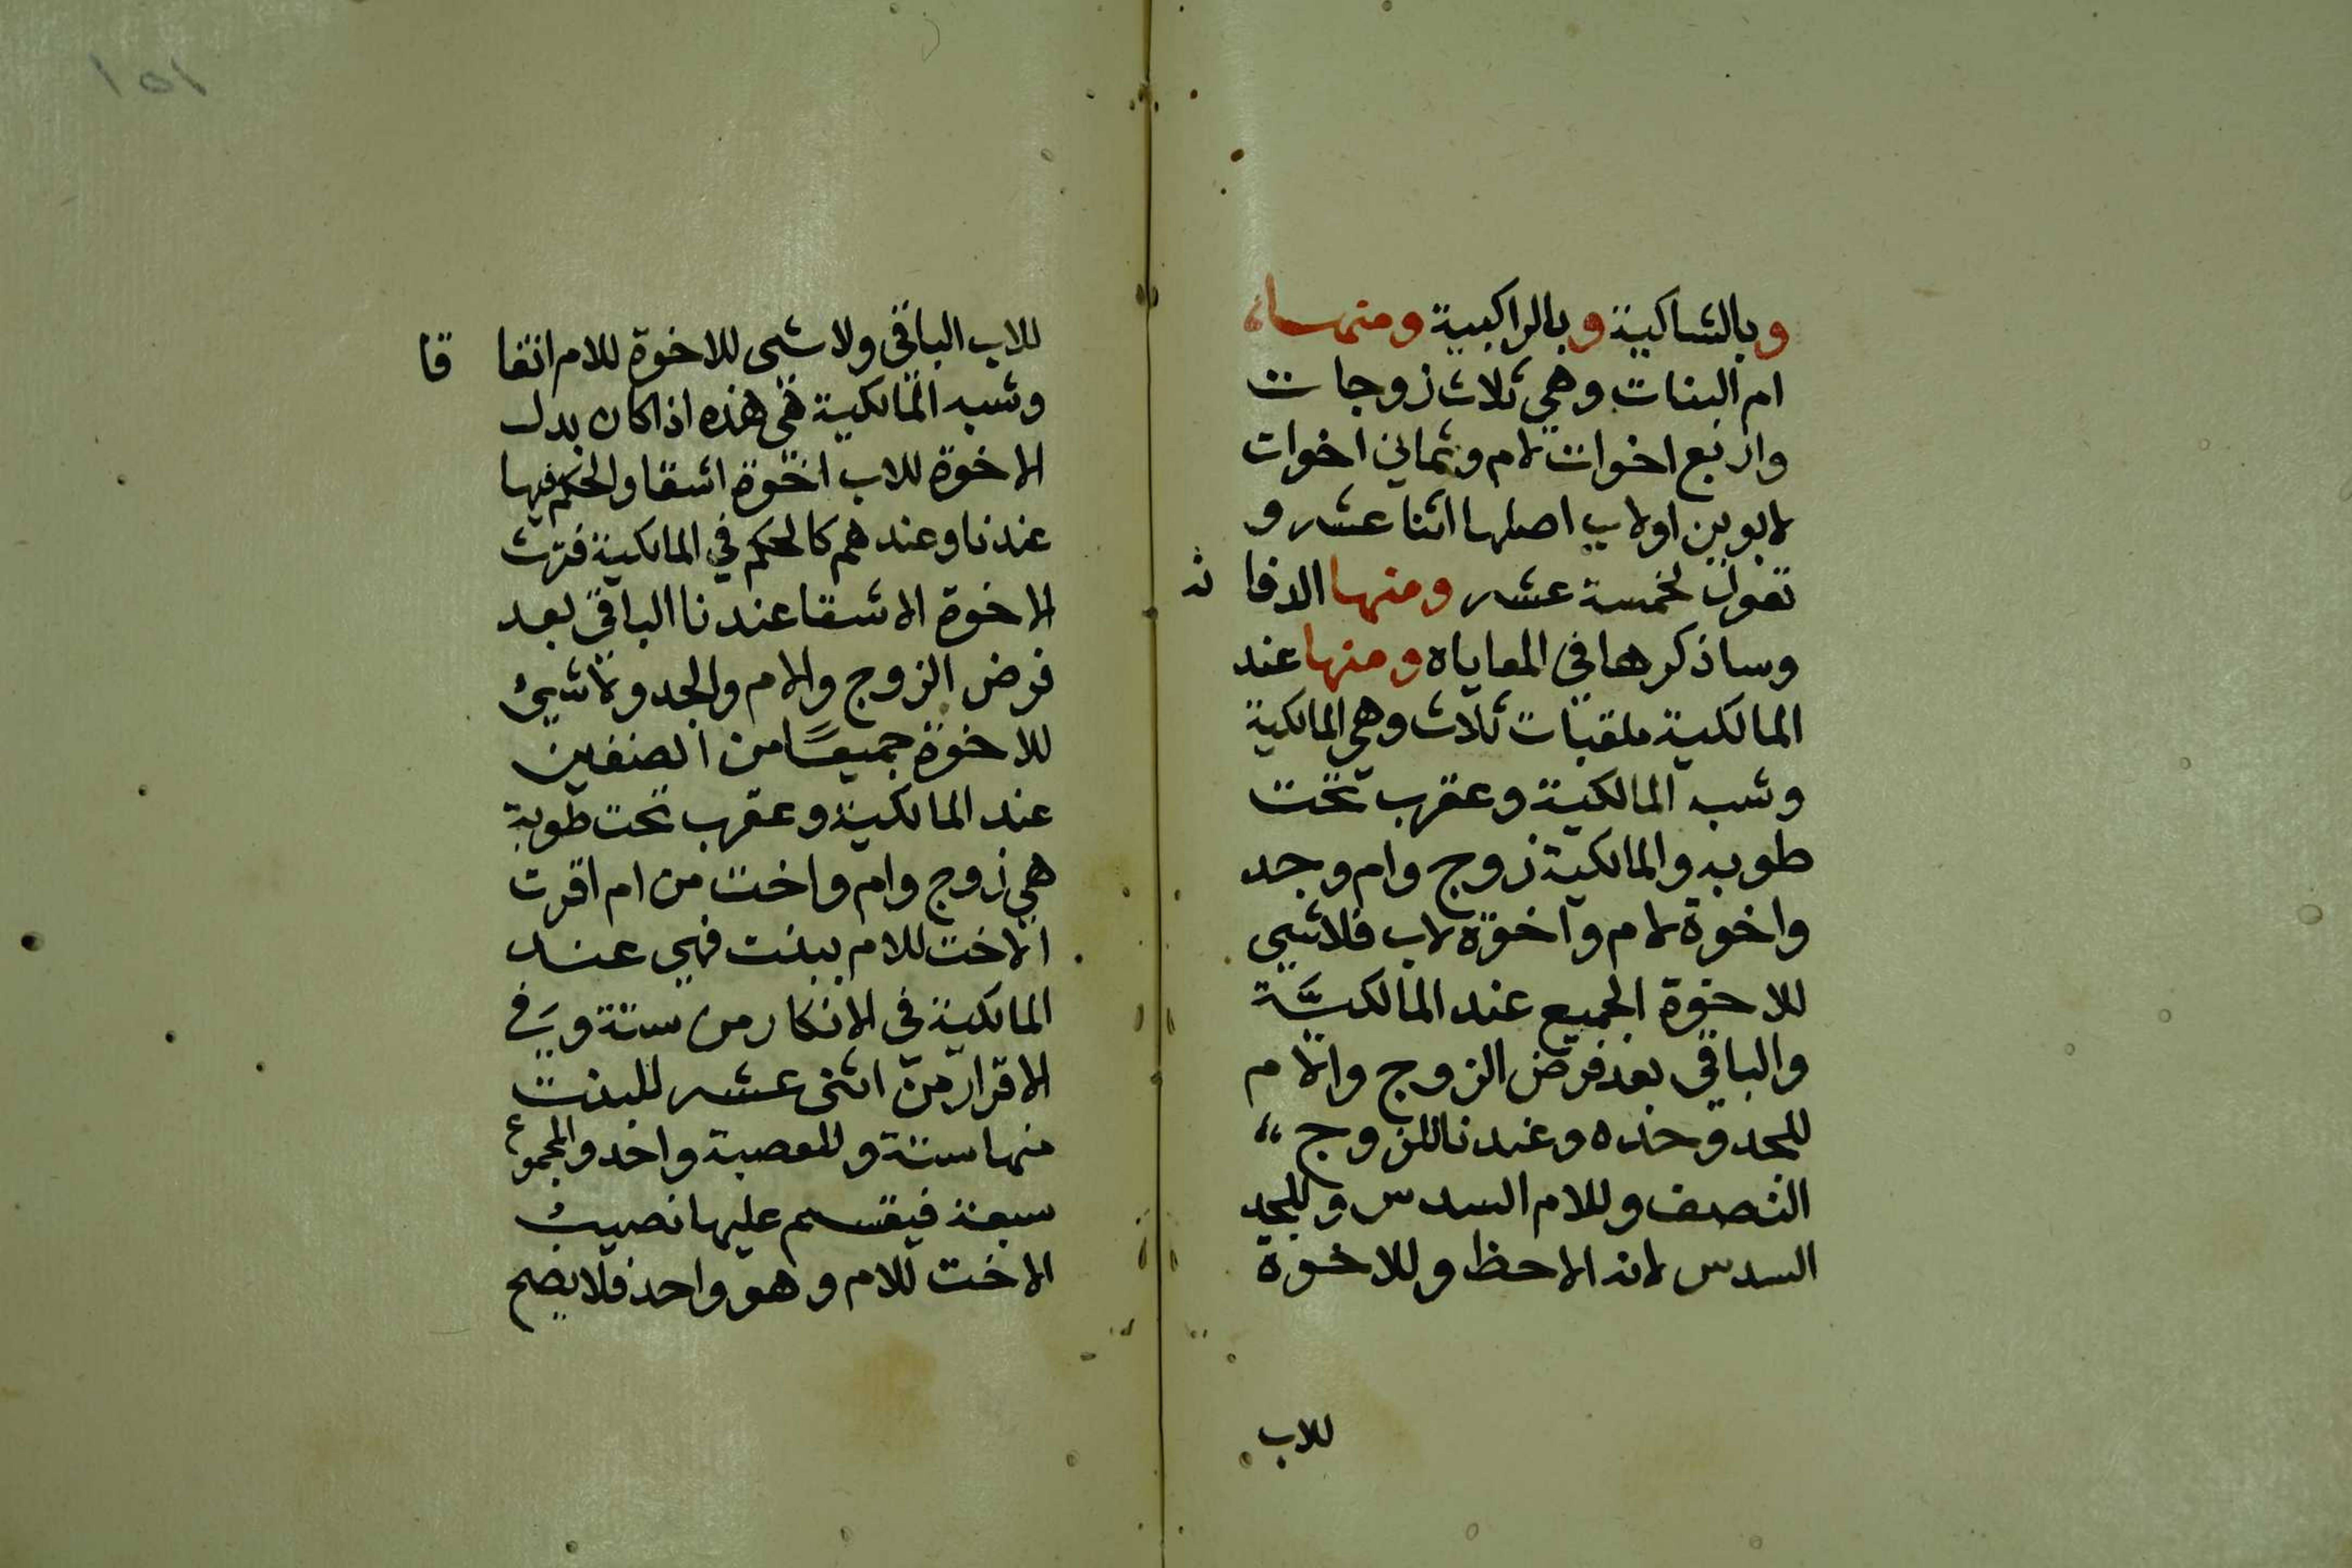 وبالشاكية وبالراكبية ومنها
ام البنات وهي ثلاث زوجات
واربع اخوات لام وثماني اخوات
لابوين اولاب اصلها اثنا عشر و
تعول لخمسة عشر ومنها الدفانة
وساذكرها في المعاياه ومنها عند
المالكية ملقبات ثلاث وهي المالكية
وشبه المالكية وعقرب تحت
طوبه والمالكية زوج وام وجد
واخوة لام واخوة لاب فلاشي
للاخوة الجميع عند المالكيَّة
والباقي بعد فرض الزوج والام
للجد وحده وعندنا للزوج
النصف وللام السدس وللجد
السدس لانه الاحظ وللاخوة
للاب
١٥١
للاب الباقي ولاشى للاخوة للام اتفاقا
وشبه المالكية هي هذه اذا كان بدل
الاخوة للاب اخوة اشقا والحكم فيها
عندنا وعندهم كالحكم في المالكية فترث
الاخوة الاشقا عندنا الباقي بعد
فرض الزوج والام والجد ولاشيئ
للاخوة جميعًا من الصنفين
عند المالكية وعقرب تحت طوبة
هي زوج وام واخت من ام اقرت
الاخت للام ببنت فهي عند
المالكية في الانكار من ستة وفي
الاقرار من اثنى عشر للبنت
منها ستة وللعصبة واحد والمجموع
سبعة فيقسم عليها نصيب
الاخت للام وهو واحد فلا يصح